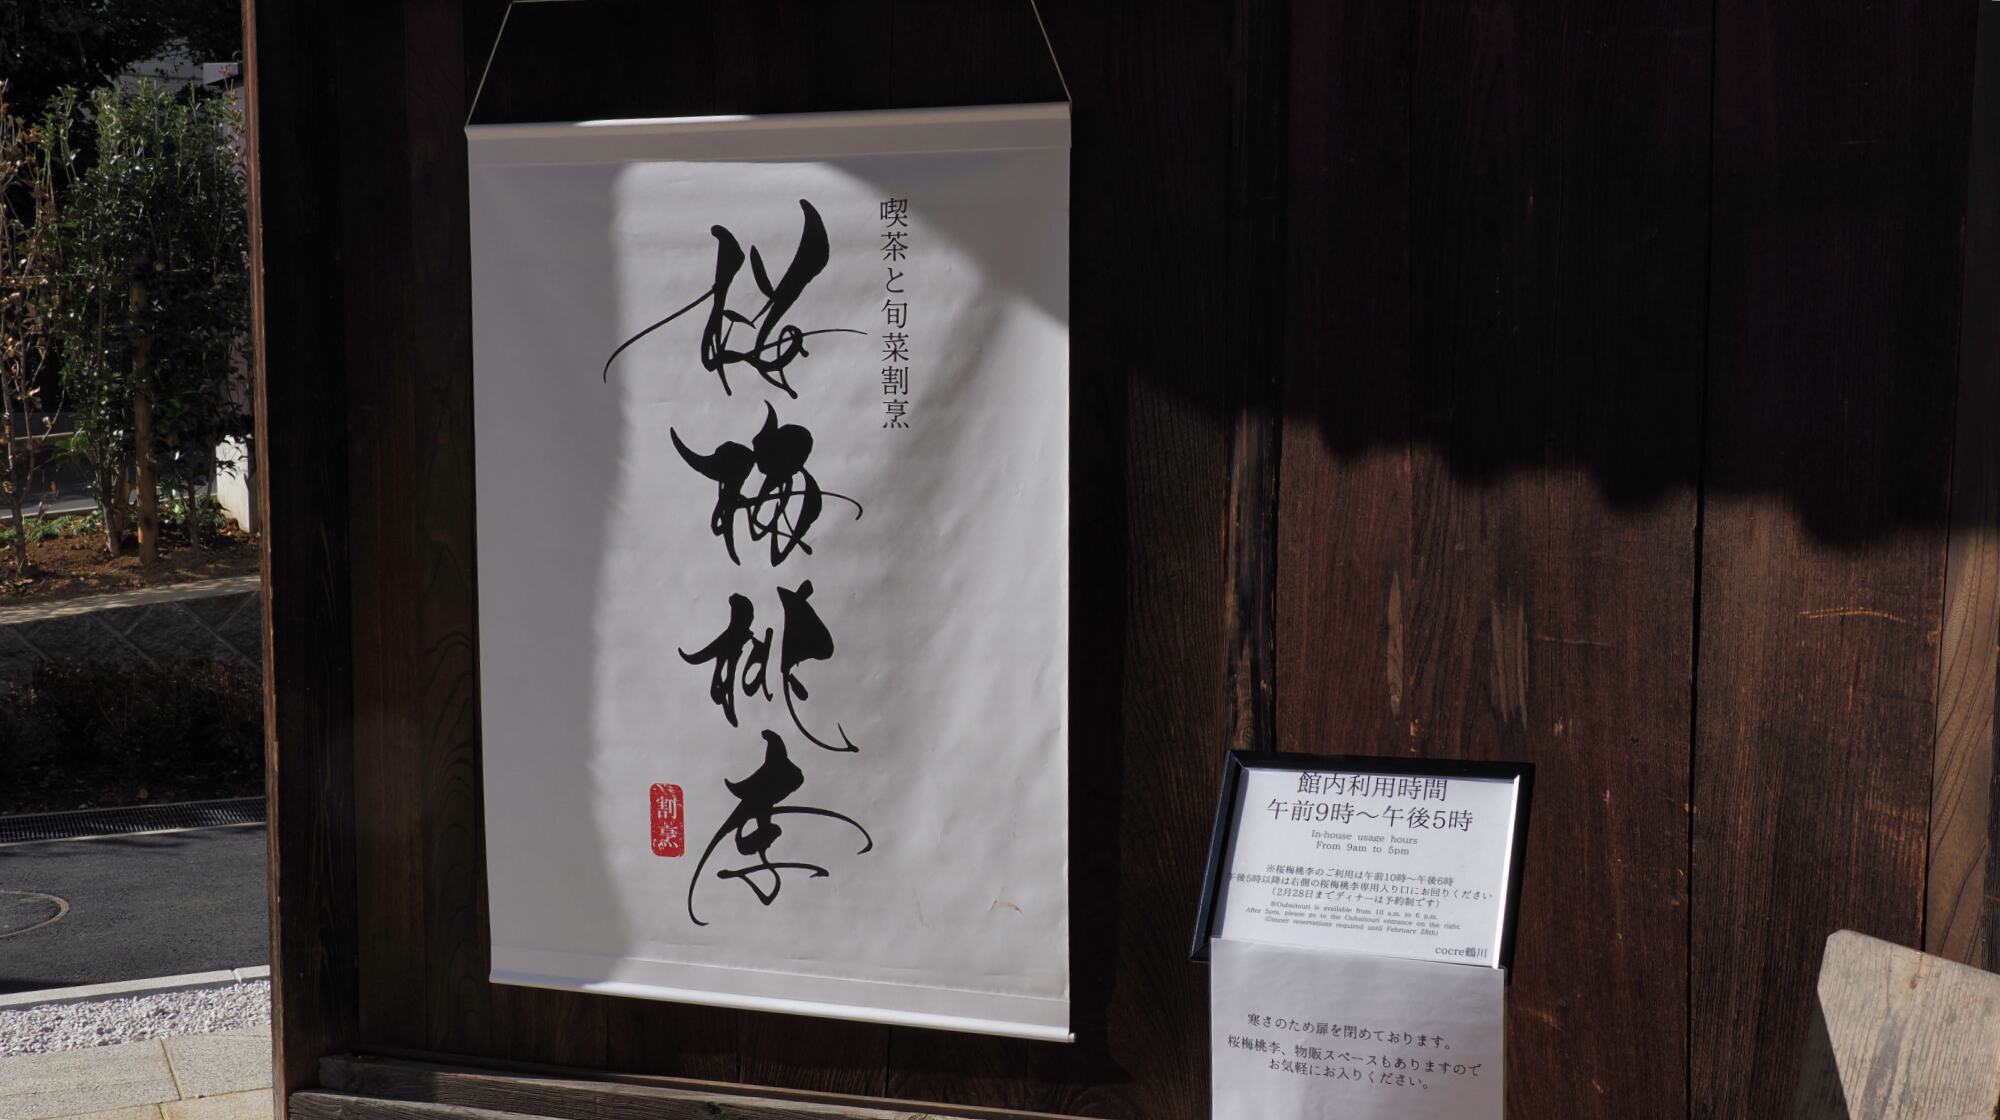 喫茶と旬菜割烹
桜梅桃李
割烹
館内利用時間
午前9時～午後5時
In-house usage hours
From 9am to 5pm
※桜梅桃李のご利用は午前10時～午後6時
午後5時以降は右側の桜梅桃李専用入り口にお回りください
（2月28日までディナーは予約制です）
※Oubaitouri is available from 10 a.m. to 6 p.m.
After 5pm, please go to the Oubaitouri entrance on the right.
(Dinner reservations required until February 28th)
cocre鶴川
寒さのため扉を閉めております。
桜梅桃李、物販スペースもありますので
お気軽にお入りください。